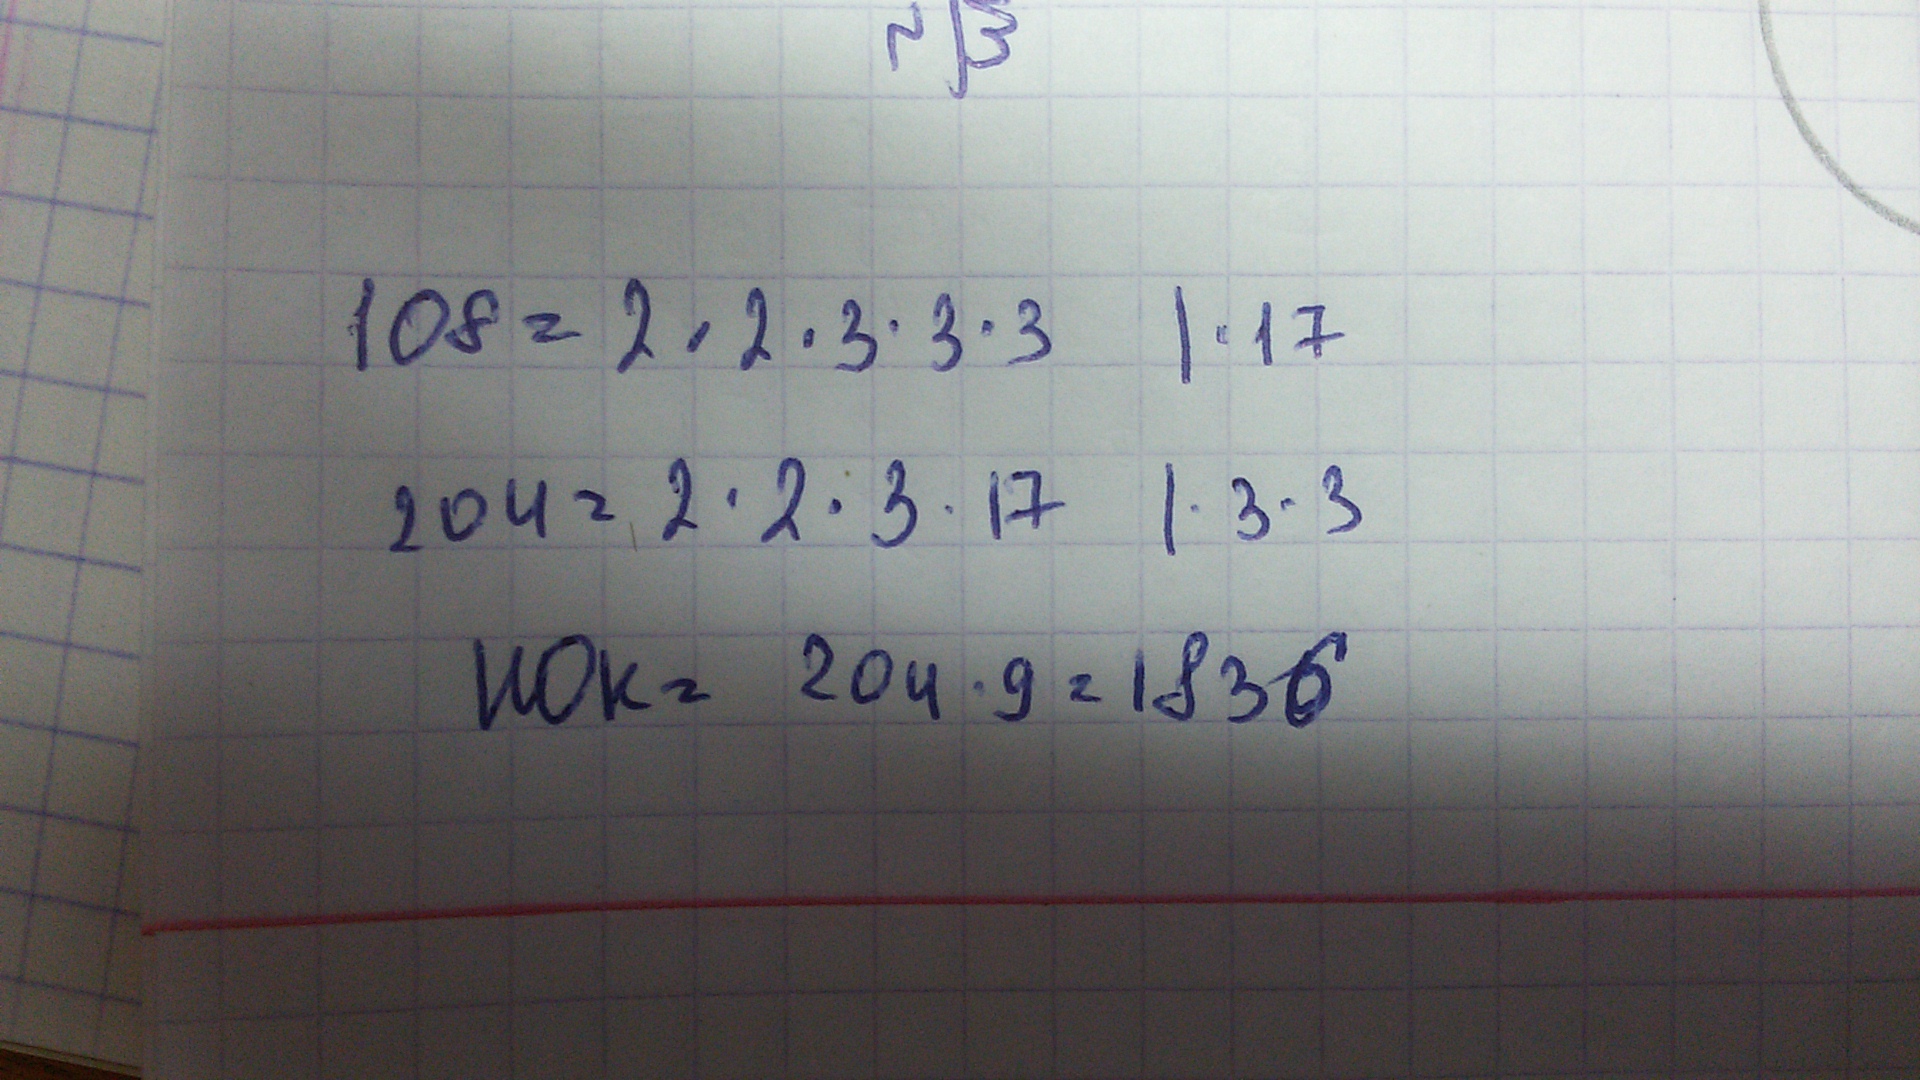 108 = 2 · 2 · 3 · 3 · 3 | · 17
204 = 2 · 2 · 3 · 17 | · 3 · 3
НОК = 204 · 9 = 1836